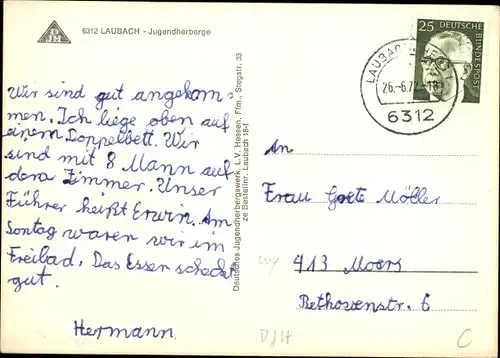 6312 LAUBACH - Jugendherberge
Wir sind gut angekom-
men. Ich liege oben auf
einem Doppelbett. Wir
sind mit 8 Mann auf
dem Zimmer. Unser
Führer heißt Erwin. Am
Sontag waren wir im
Freibad. Das Essen schmeckt
gut.
Hermann
Deutsches Jugendherbergswerk, L.V. Hessen, Ffm., Stegstr. 33
ze Bestellnr. Laubach 184
25 DEUTSCHE
BUNDESPOST
LAUBACH
26.-6.72-18
6312
An
Frau Grete Möller
413 Moers
Bethovenstr. 6
DJH
C